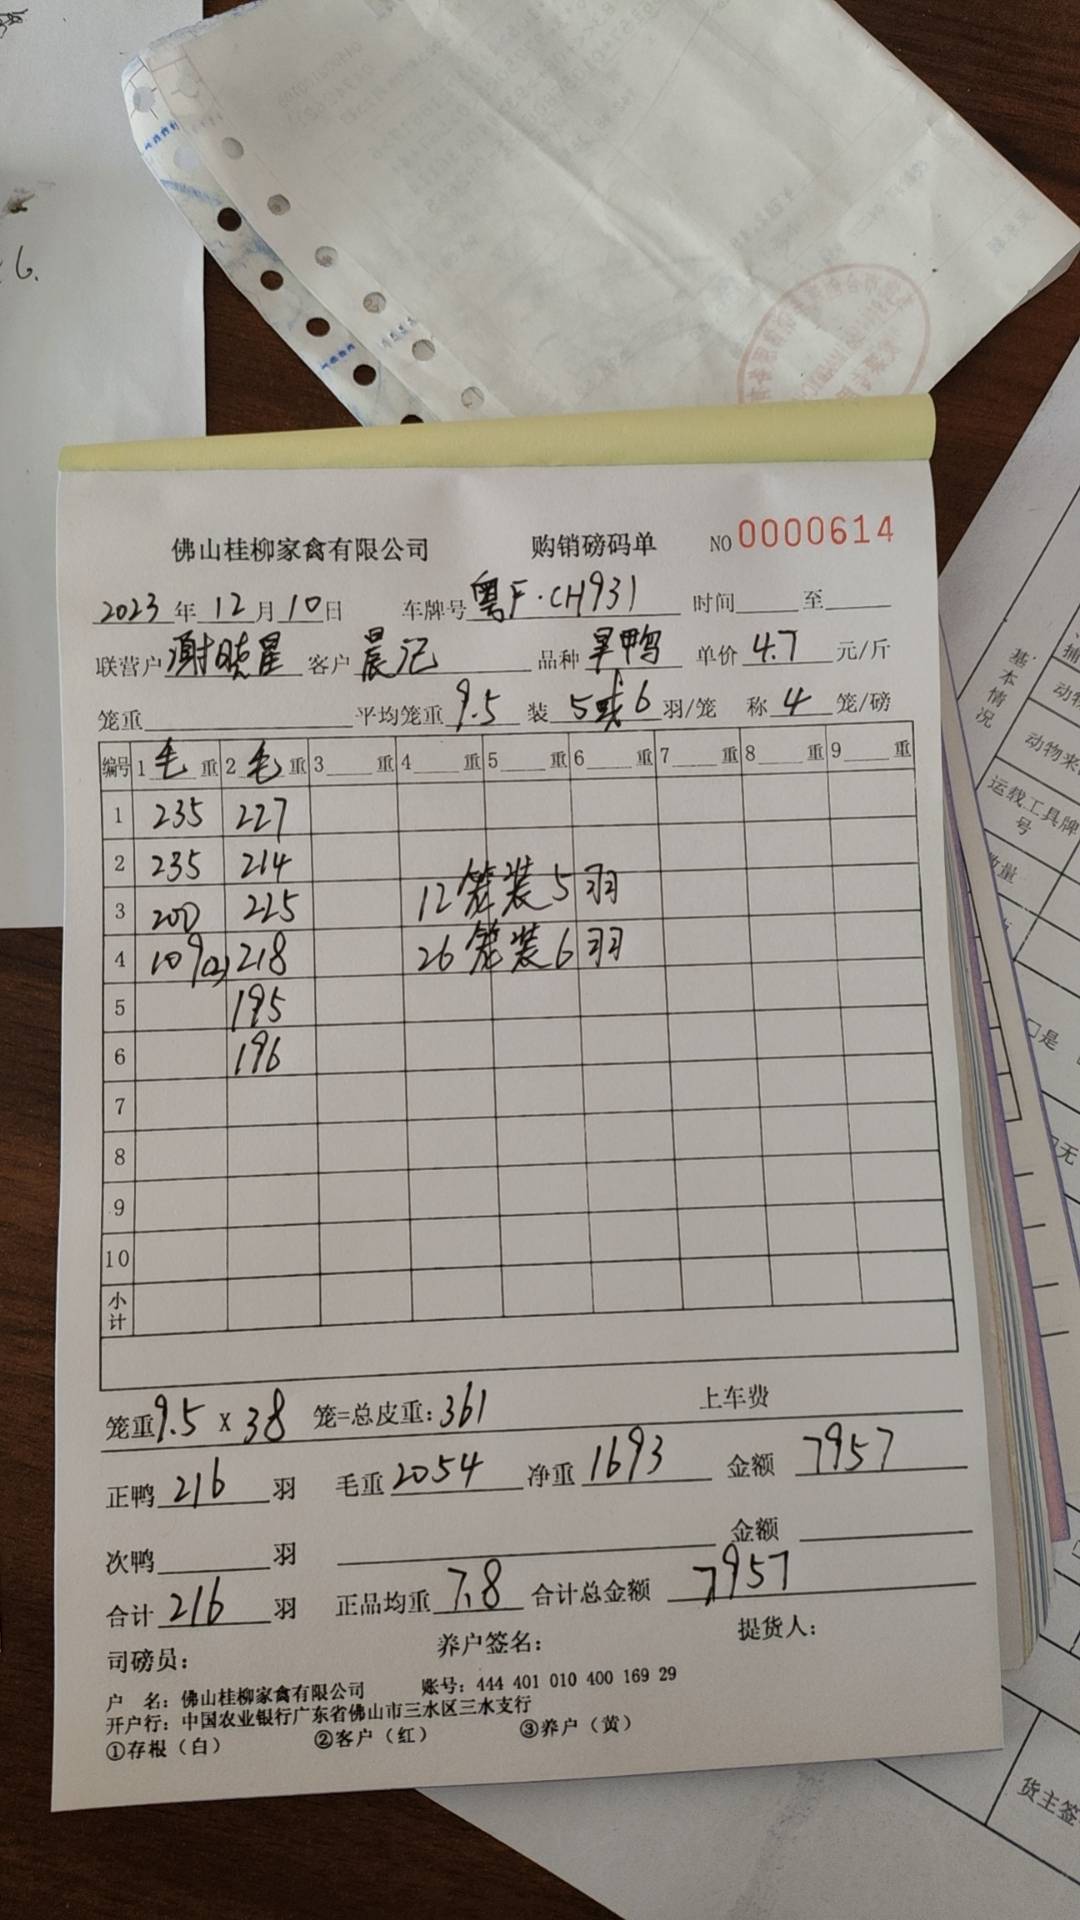 6.
佛山桂柳家禽有限公司 购销磅码单 NO 0000614
2023年12月10日 车牌号粤F·CH931 时间 至
联营户谢晓星 客户晨记 品种旱鸭 单价4.7元/斤
笼重 平均笼重9.5 装5或6羽/笼 称4笼/磅
编号 1毛重 2毛重 3 重 4 重 5 重 6 重 7 重 8 重 9 重
1 235 227
2 235 214
3 200 225 12笼装5羽
4 109(2) 218 26笼装6羽
5 195
6 196
7
8
9
10
小计
笼重9.5x38 笼=总皮重:361 上车费
正鸭216羽 毛重2054 净重1693 金额7957
次鸭 羽 金额
合计216羽 正品均重7.8 合计总金额7957
司磅员: 养户签名: 提货人:
户 名:佛山桂柳家禽有限公司 账号:444 401 010 400 169 29
开户行:中国农业银行广东省佛山市三水区三水支行
①存根(白) ②客户(红) ③养户(黄)
基本情况
动物来
运载工具牌号
数量
□是
无
货主签